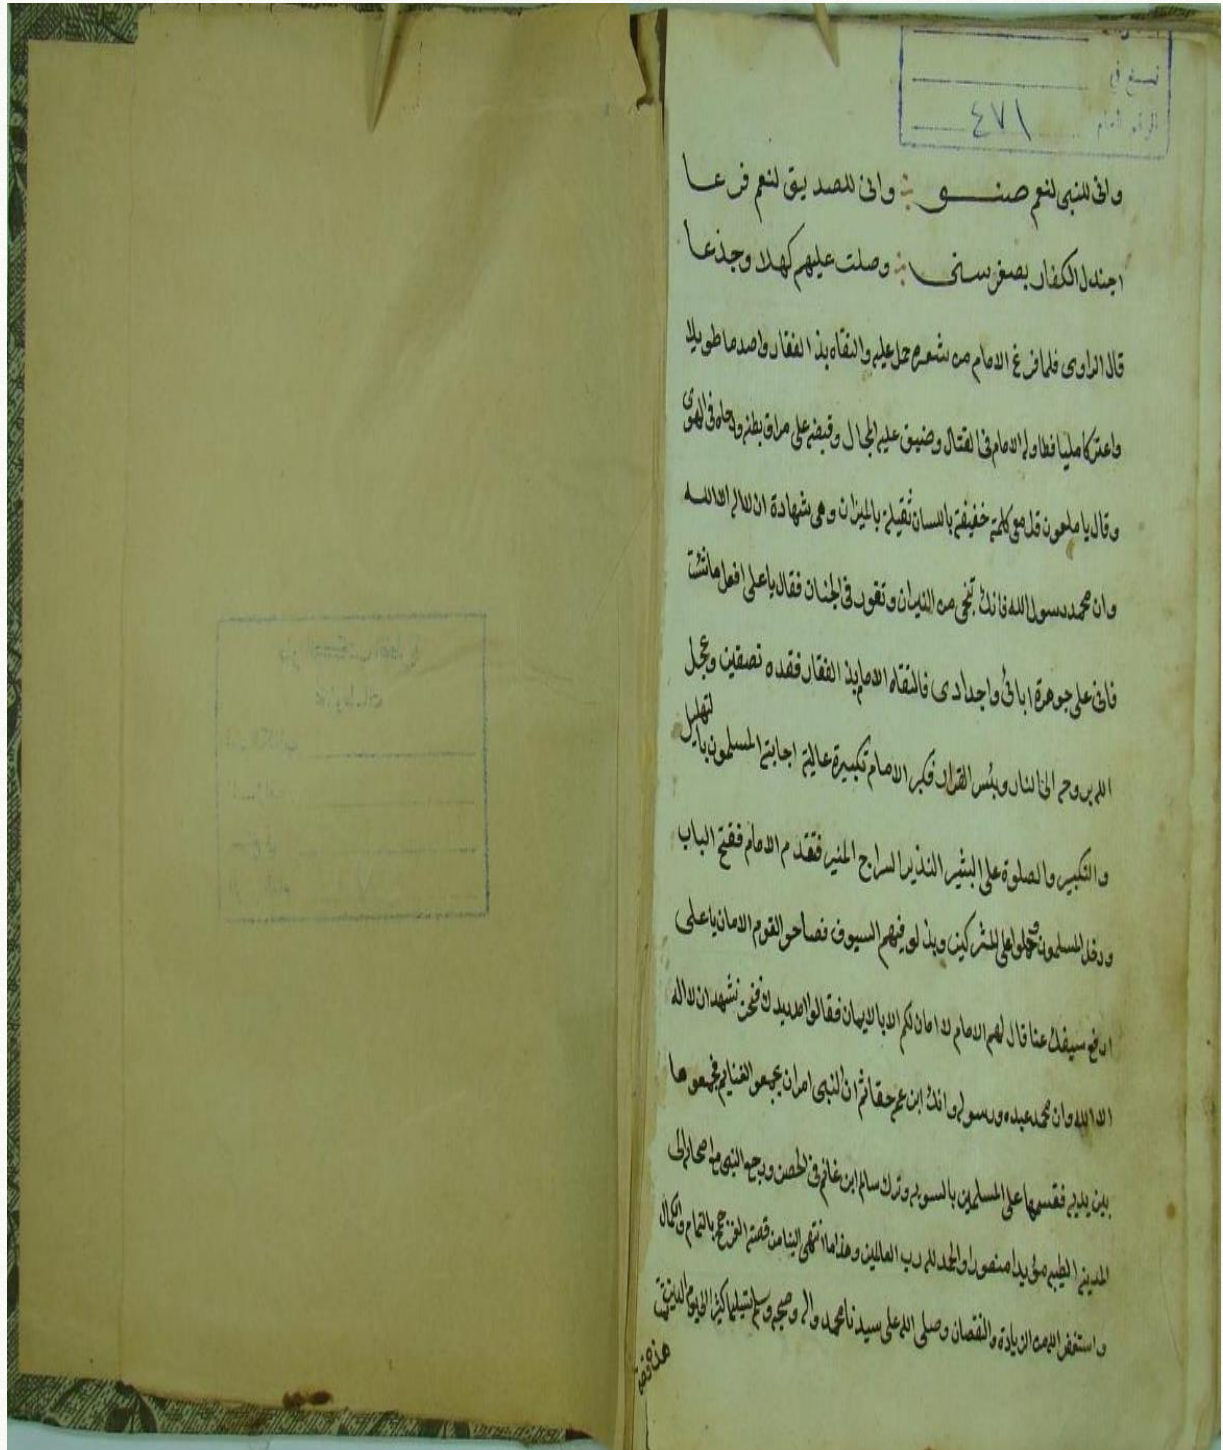 نسخ في
الرقم العام ٤٧١
واني للنبي لنعم صنو واني للصديق لنعم فرعا
اجندل الكفار بصغر سني وصلت عليهم كهلا وجذعا
قال الراوى فلما فرغ الامام من شعره حمل عليه والتقاه بذا الفقار واصدما طويلا
واعتركا مليا فطاوله الامام في القتال وضيق عليه المجال وقبضه على مراق بطنه ودحاه في الهوى
وقال يا ملعون قل معى كلمة خفيفة باللسان ثقيلة بالميزان وهي شهادة ان لا اله الا الله
وان محمد رسول الله فانك تنجى من النيران وتقود في الجنان فقال يا على افعل ما شئت
فانى على جوهرة ابائى واجدادى فالتقاه الامام بذا الفقار فقده نصفين وعجل
الله بروحه الى النار وبئس القرار فكبر الامام تكبيرة عالية اجابته المسلمون بالتهليل
والتكبير والصلوة على البشير النذير السراج المنير فتقدم الامام ففتح الباب
ودخل المسلمون وحملوا على المشركين وبذلو فيهم السيوف فصاحو القوم الامان يا على
ارفع سيفك عنا قال لهم الامام لا امان لكم الا بالايمان فقالوا امدد يدك فنحن نشهد ان لا اله
الا الله وان محمد عبده ورسوله وانك ابن عمه حقا ثم ان النبى امر ان يجمعو الغنايم فجمعوها
بين يديه فقسمها على المسلمين بالسويه وترك سالم ابن غانم في الحصن ورجع النبى مع اصحابه الى
المدينه الطيبه مؤيدا منصورا والحمد لله رب العالمين وهذا ما انتهى الينا من قصة بالتمام والكمال
واستغفر الله من الزيادة والنقصان وصلى الله على سيدنا محمد واله وصحبه وسلم تسليما كثيرا الى يوم الدين تمت
هذه قصة